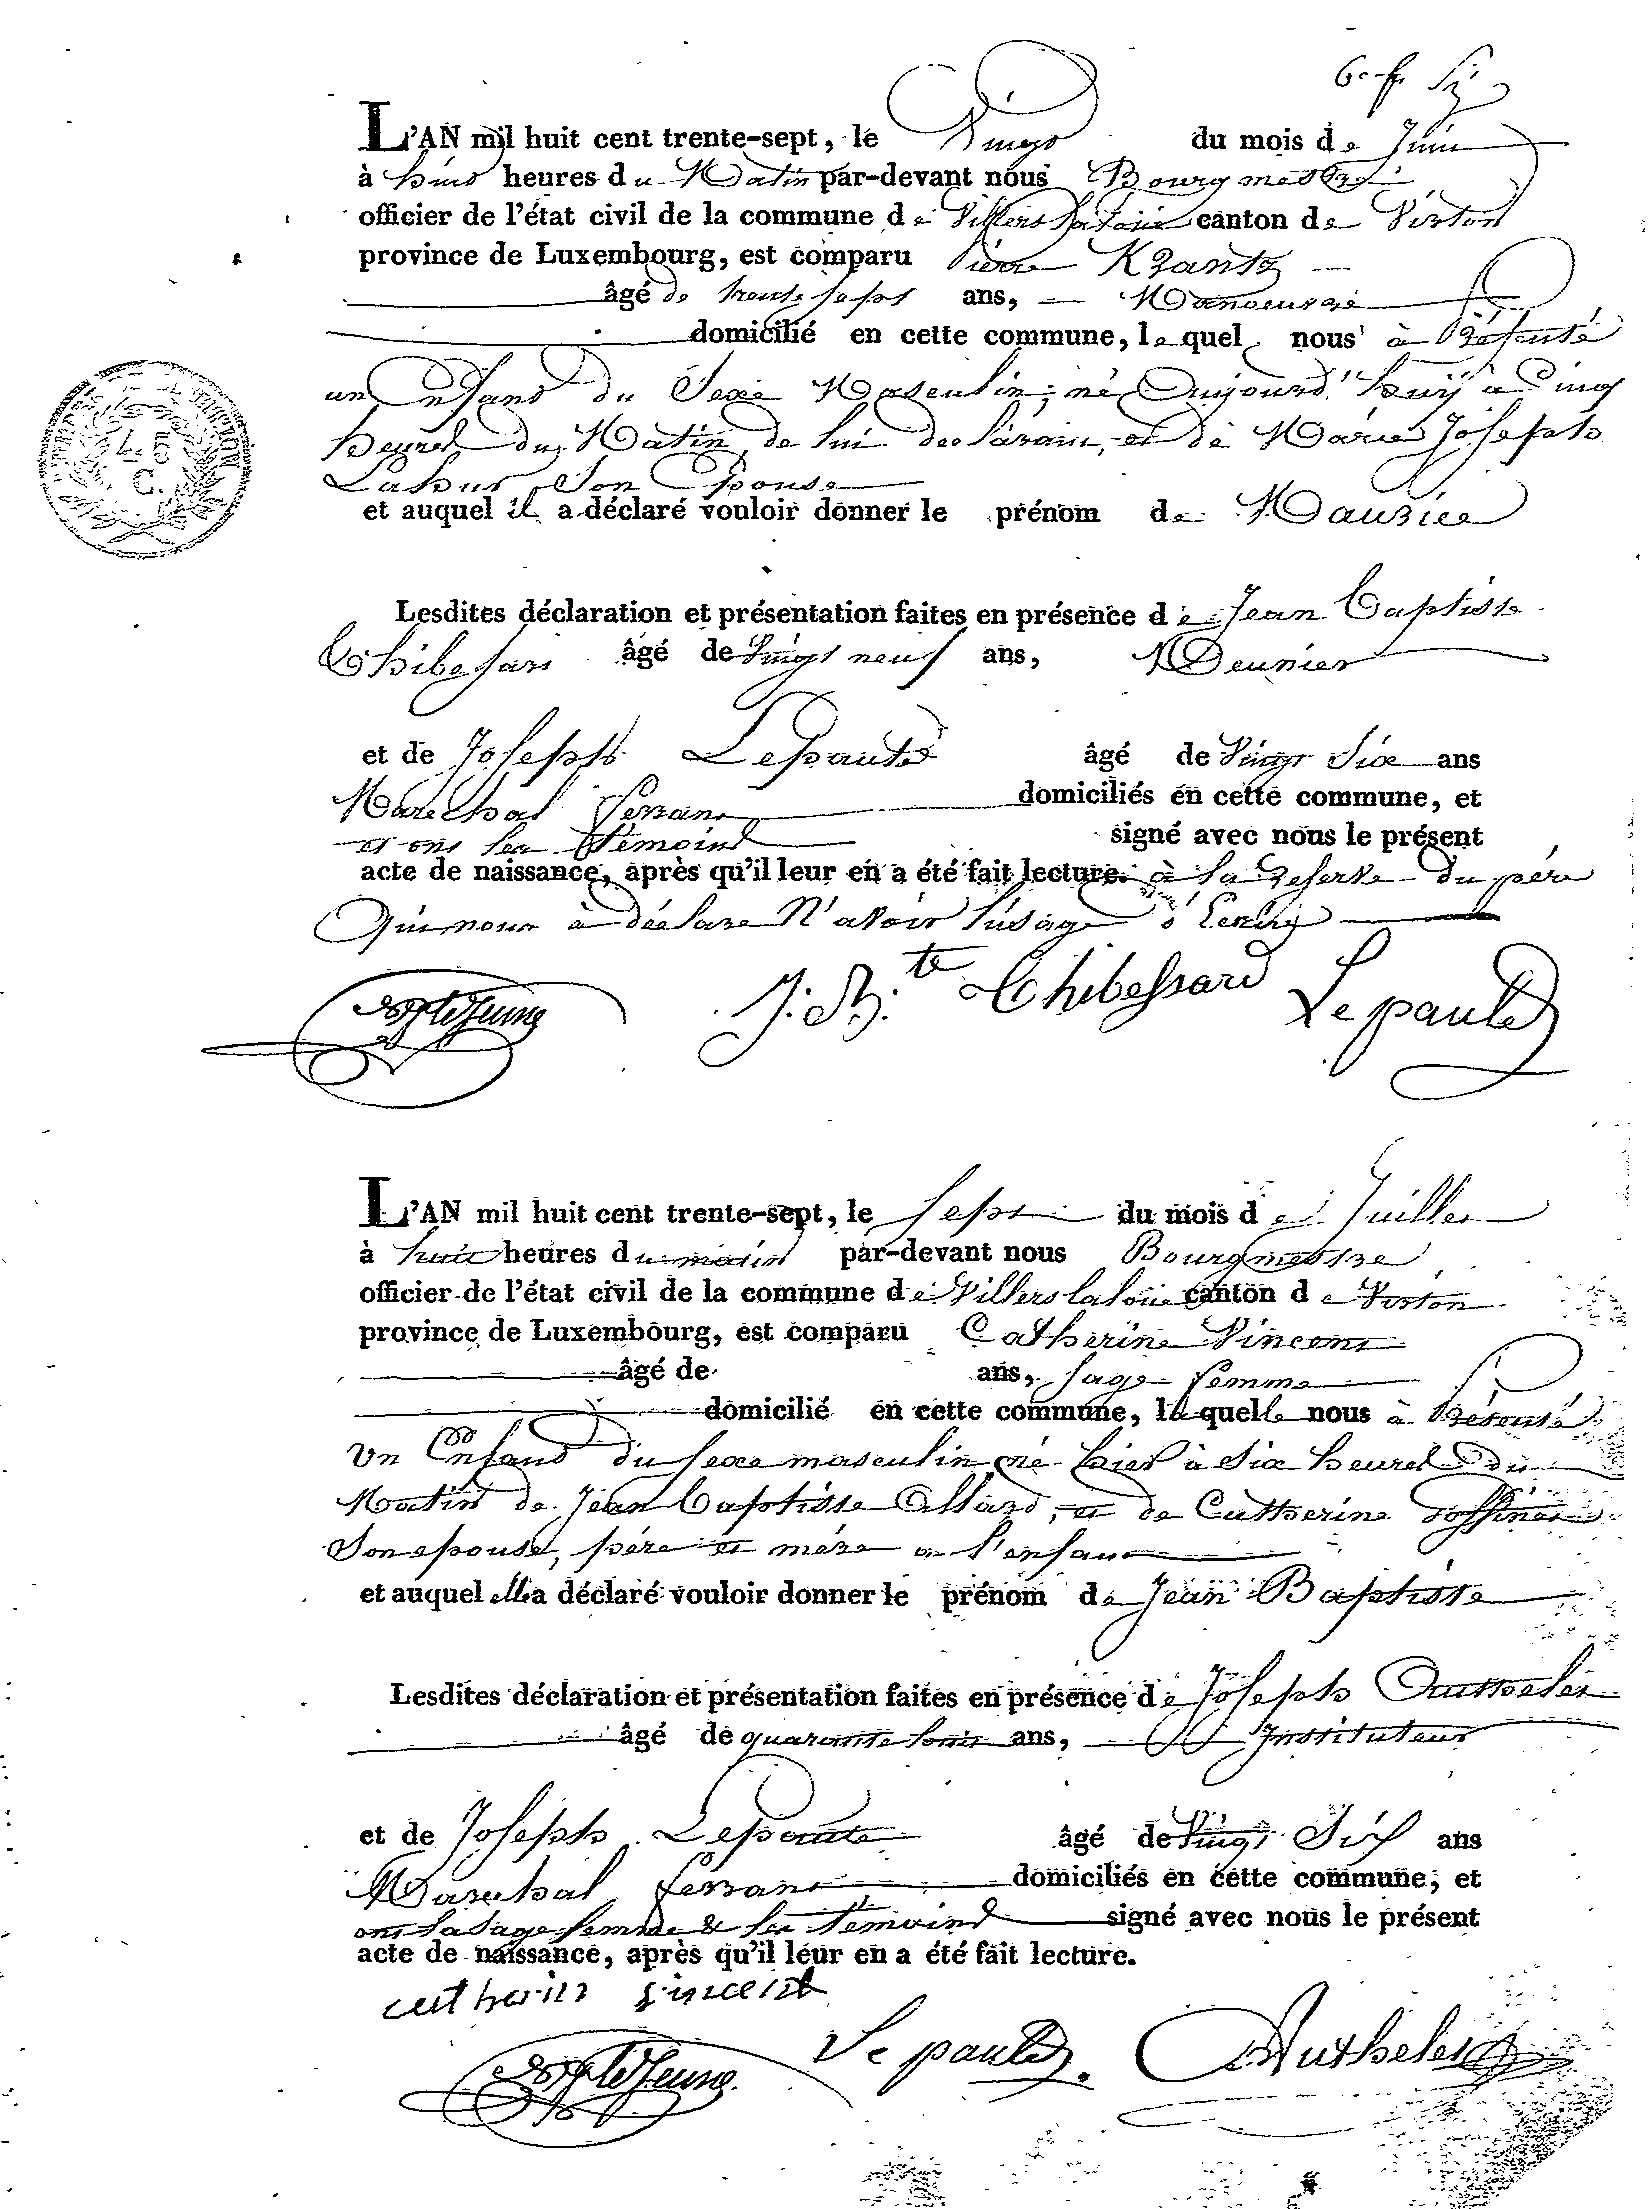 L'AN mil huit cent trente-sept, le Vingt du mois de Juin
à huit heures du Matin par-devant nous Bourgmestre
officier de l'état civil de la commune de Villers la Loue canton de Virton
province de Luxembourg, est comparu Pierre Krantz
âgé de trente sept ans, Manoeuvre
domicilié en cette commune, le quel nous à Présenté
un Enfant du Sexe Masculin, né Aujourd'huy à Cinq
heures du Matin, de lui déclarant, et de Marie Joseph
Lahur Son Epouse
et auquel il a déclaré vouloir donner le prénom de Maurice
Lesdites déclaration et présentation faites en présence de Jean Baptiste
Thibesart âgé de Vingt neuf ans, Meunier
et de Joseph Lepaute âgé de Vingt Six ans
Marechal ferrant domiciliés en cette commune, et
et ont les Témoins signé avec nous le présent
acte de naissance, après qu'il leur en a été fait lecture. à la reserve du père
Qui nous à déclare N'avoir l'usage d'Ecrire
J. B.te Thibessard Lepaute
L'AN mil huit cent trente-sept, le sept du mois de Juillet
à huit heures du matin par-devant nous Bourgmestre
officier de l'état civil de la commune de Villers la loue canton de Virton
province de Luxembourg, est comparu Catherine Vincent
âgé de ans, sage femme
domicilié en cette commune, laquelle nous à Présenté
Un Enfant du sexe masculin né hier à Six heures du
Matin de Jean Baptiste Allard, et de Catherine
Son epouse, père et mère de l'enfant
et auquel elle a déclaré vouloir donner le prénom de Jean Baptiste
Lesdites déclaration et présentation faites en présence de Joseph Authelet
âgé de quarante ans, Instituteur
et de Joseph Lepaute âgé de Vingt Six ans
Marechal ferrant domiciliés en cette commune, et
ont la sage femme & les Témoins signé avec nous le présent
acte de naissance, après qu'il leur en a été fait lecture.
catherin vincent
Lepaute Authelet